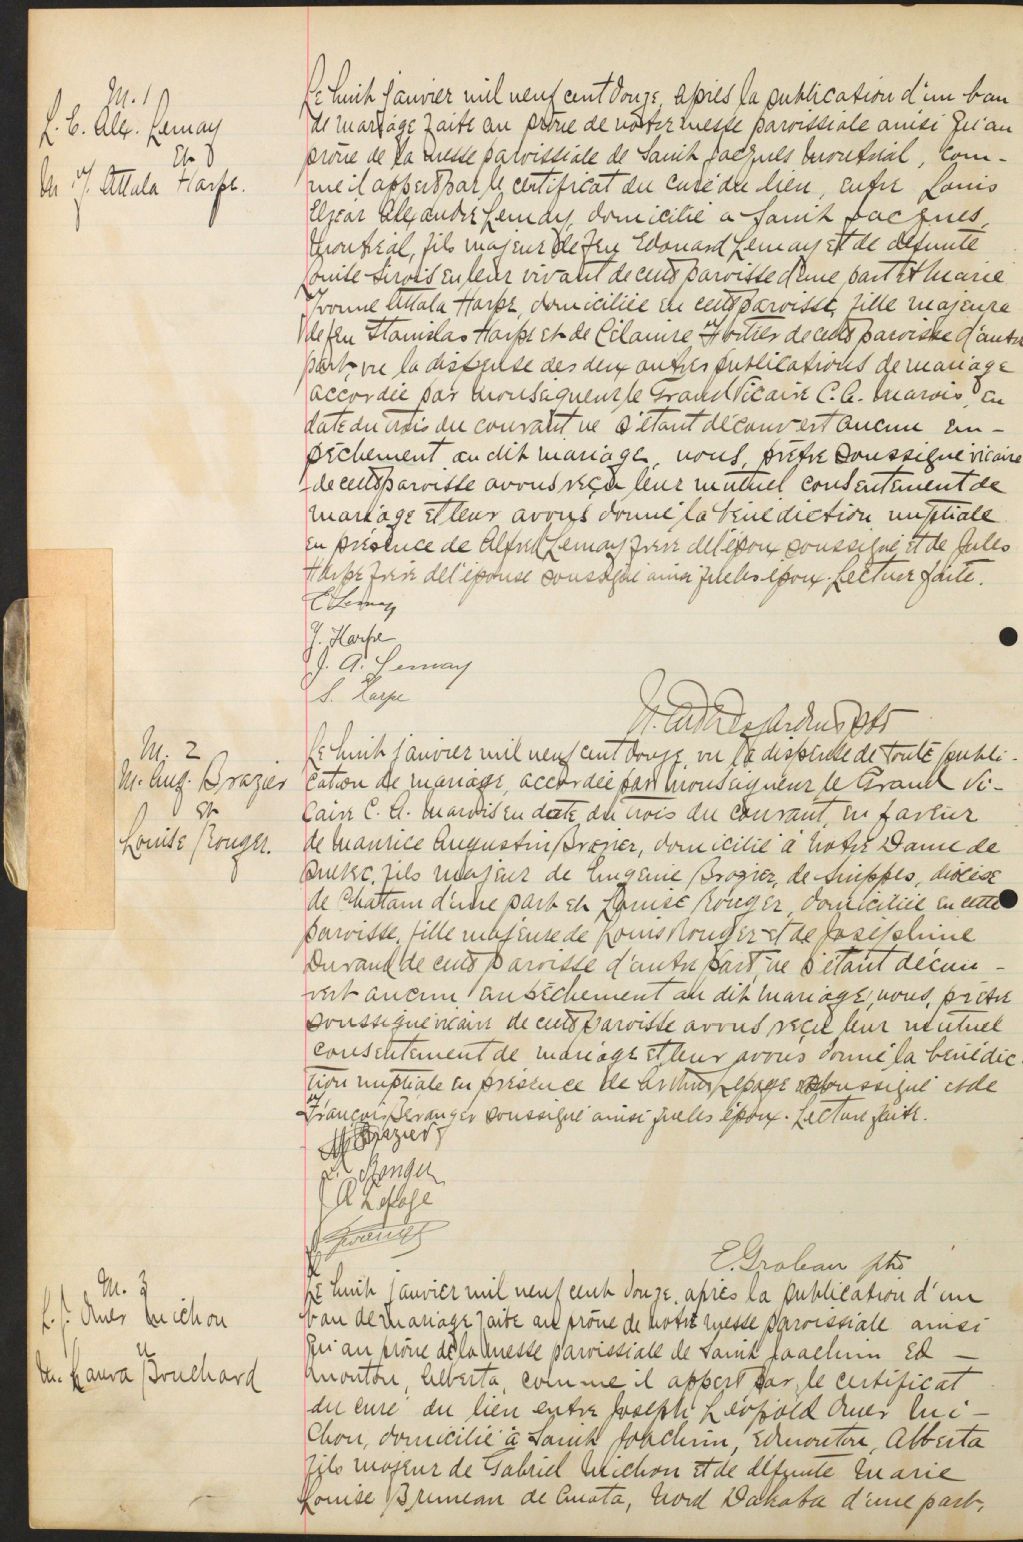 M. 1
L. E. Alex. Lemay
Et
M. Y. Attala Harpe.
Le huit janvier mil neuf cent douze, après la publication d'un ban
de mariage faite au prône de notre messe paroissiale ainsi qu'au
prône de la messe paroissiale de Saint Jacques Montréal, com-
me il appert par le certificat du curé du lieu, entre Louis
Elzéar Alexandre Lemay, domicilié a Saint Jacques,
Montréal, fils majeur de feu Edouard Lemay et de défunte
Louise Sirois en leur vivant de cette paroisse d'une part et Marie
Yvonne Attala Harpe, domiciliée en cette paroisse, fille majeure
de feu Stanislas Harpe et de Célanire de cette paroisse d'autre
part, vu la dispense des deux autres publications de mariage
accordée par Monseigneur le Grand Vicaire C. A. Marois, en
date du trois du courant, ne s'étant découvert aucun em-
pêchement au dit mariage, nous, prêtre soussigné vicaire
de cette paroisse avons reçu leur mutuel consentement de
mariage et leur avons donné la bénédiction nuptiale
en présence de Alfred Lemay frère de l'époux soussigné et de Jules
Harpe frère de l'épouse soussigné ainsi que les époux. Lecture faite.
E Lemay
Y. Harpe
J. A. Lemay
S. Harpe
Desjardins ptr
M. 2
M. Aug. Brazier
Et
Louise Rouger.
Le huit janvier mil neuf cent douze, vu la dispense de toute publi-
cation de mariage, accordée par Monseigneur le Grand Vi-
caire C. A. Marois en date du trois du courant, en faveur
de Maurice Augustin Brazier, domicilié à Notre Dame de
Québec, fils majeur de Eugenie Brazier, de Suippes, diocèse
de Chatam d'une part et Louise Rouger, domiciliée en cette
paroisse, fille majeure de Louis Rouger et de Joséphine
Durand de cette paroisse d'autre part, ne s'étant décou-
vert aucun empêchement au dit mariage, nous, prêtre
soussigné vicaire de cette paroisse avons reçu leur mutuel
consentement de mariage et leur avons donné la bénédic-
tion nuptiale en présence de Arthur Lepage soussigné et de
François Béranger soussigné ainsi que les époux. Lecture faite.
Brazier
L. Rouger
J A Lepage
E. Groleau ptre
M. 3
L. J. Omer Michon
et
M. Laura Bouchard
Le huit janvier mil neuf cent douze, après la publication d'un
ban de mariage faite au prône de notre messe paroissiale ainsi
qu'au prône de la messe paroissiale de Saint Joachim Ed-
monton, Alberta, comme il appert par le certificat
du curé du lieu entre Joseph Léopold Omer Mi-
chon, domicilié à Saint Joachim, Edmonton, Alberta
fils majeur de Gabriel Michon et de défunte Marie
Louise Bruneau de Cuata, Nord Dakota d'une part,